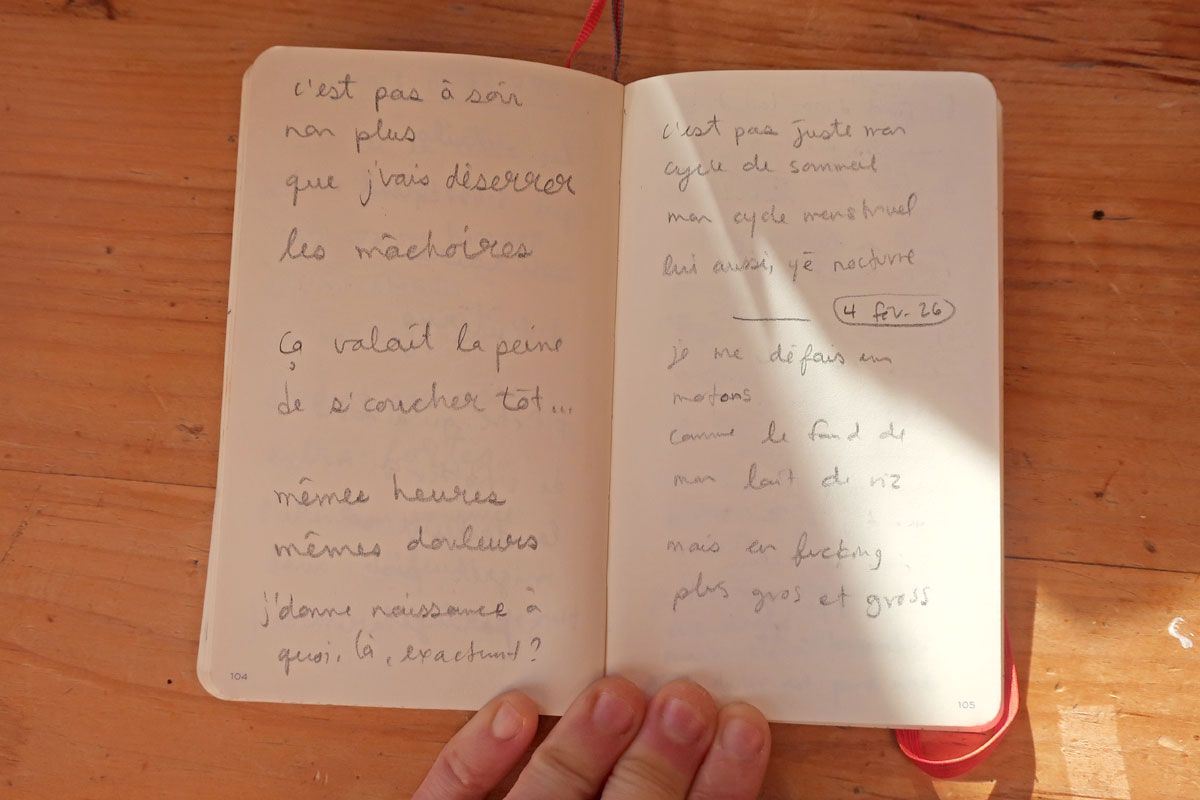 c'est pas à soir
non plus
que j'vais désserrer
les mâchoires
ça valait la peine
de s'coucher tôt...
mêmes heures
mêmes douleurs
j'donne naissance à
quoi, là, exactmnt?
104
c'est pas juste mon
cycle de sommeil
mon cycle menstruel
lui aussi, yé nocturne
4 fév. 26
je me défais en
motons
comme le fond de
mon lait de riz
mais en fucking
plus gros et gross
105